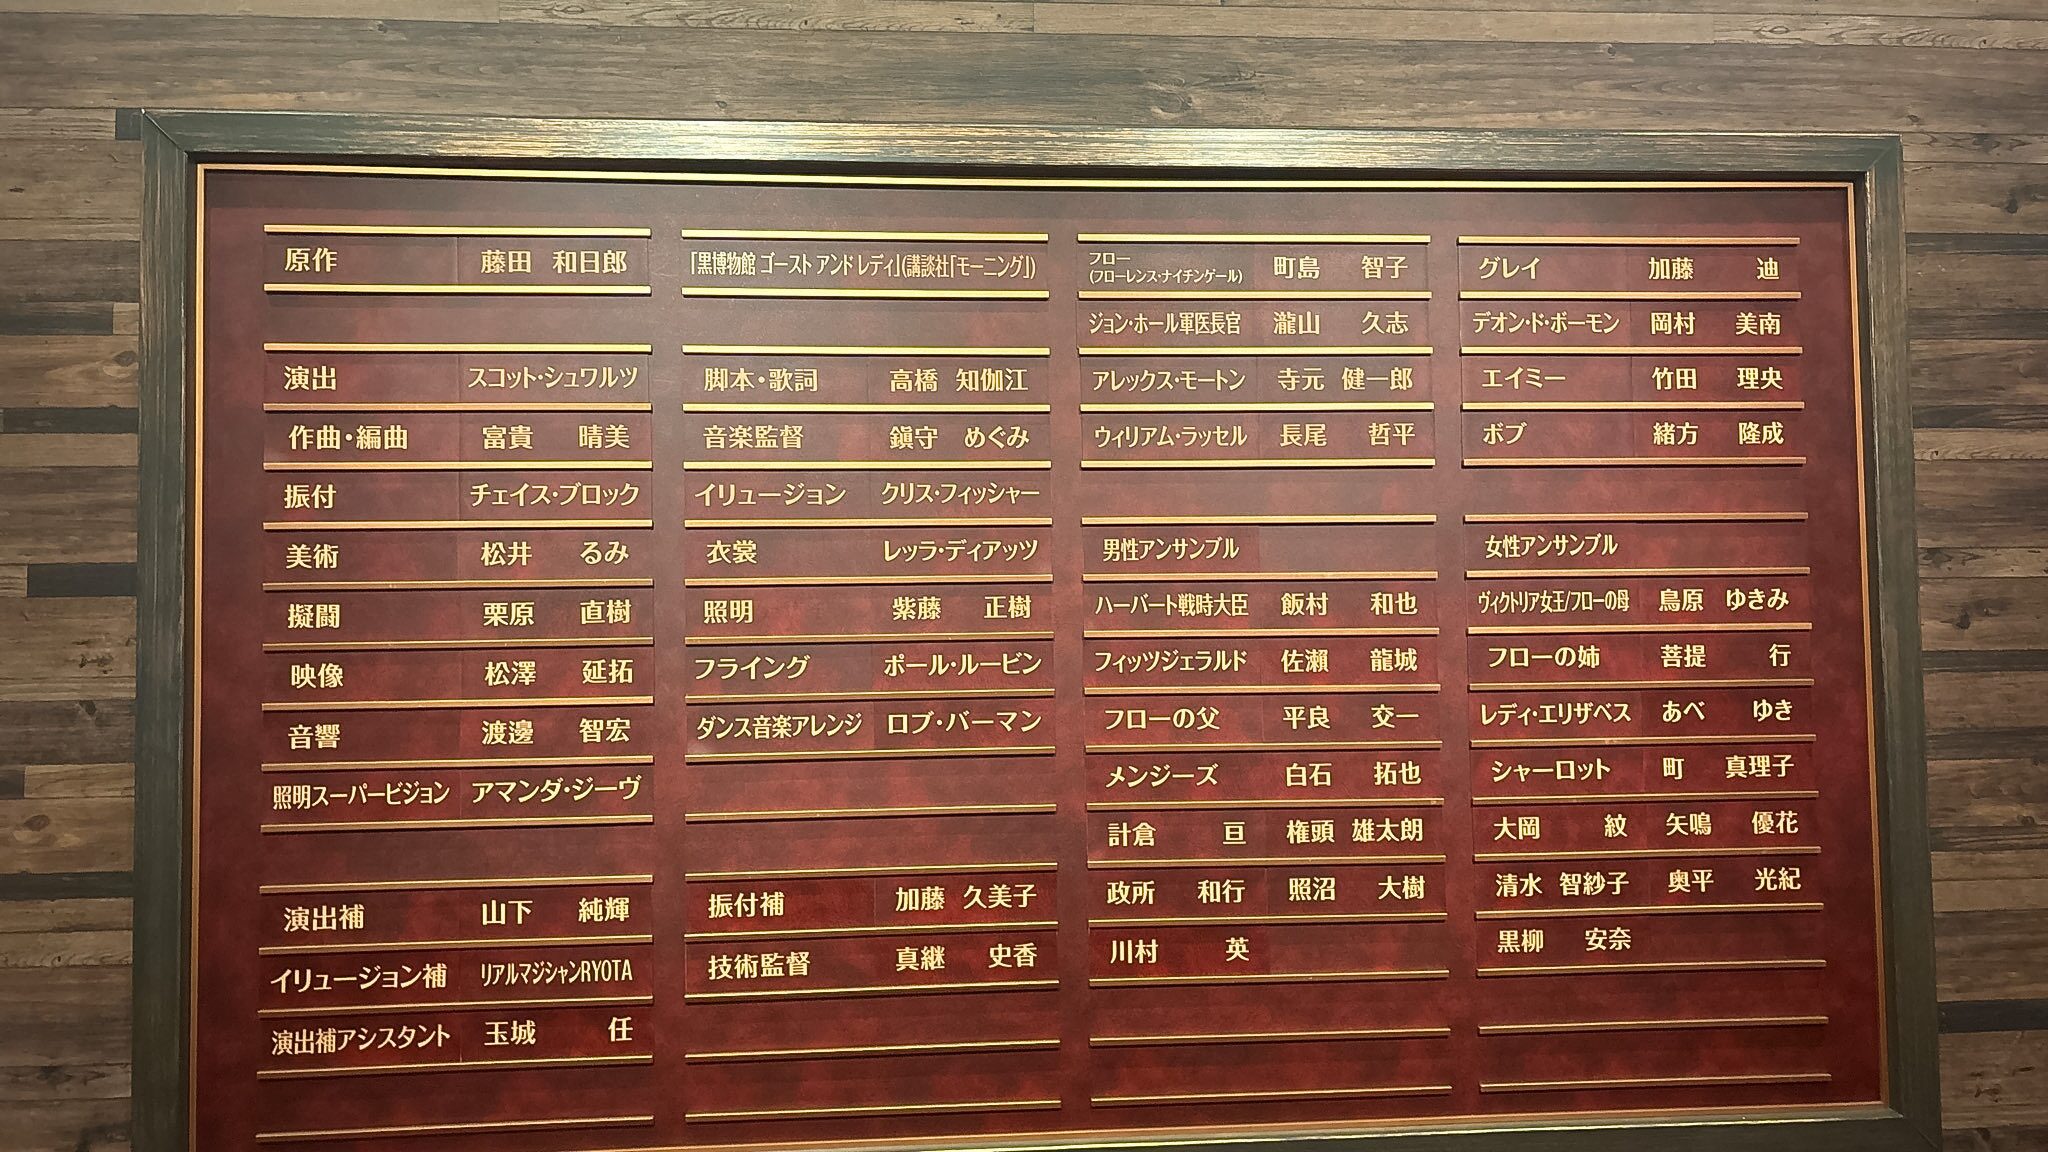 原作 藤田 和日郎
「黒博物館 ゴースト アンド レディ」(講談社「モーニング」)
演出 スコット・シュワルツ
作曲・編曲 富貴 晴美
振付 チェイス・ブロック
美術 松井 るみ
擬闘 栗原 直樹
映像 松澤 延拓
音響 渡邊 智宏
照明スーパービジョン アマンダ・ジーヴ
演出補 山下 純輝
イリュージョン補 リアルマジシャンRYOTA
演出補アシスタント 玉城 任
脚本・歌詞 高橋 知伽江
音楽監督 鎭守 めぐみ
イリュージョン クリス・フィッシャー
衣裳 レッラ・ディアッツ
照明 紫藤 正樹
フライング ポール・ルービン
ダンス音楽アレンジ ロブ・バーマン
振付補 加藤 久美子
技術監督 真継 史香
フロー
(フローレンス・ナイチンゲール) 町島 智子
ジョン・ホール軍医長官 瀧山 久志
アレックス・モートン 寺元 健一郎
ウィリアム・ラッセル 長尾 哲平
男性アンサンブル
ハーバート戦時大臣 飯村 和也
フィッツジェラルド 佐瀬 龍城
フローの父 平良 交一
メンジーズ 白石 拓也
計倉 亘 権頭 雄太朗
政所 和行 照沼 大樹
川村 英
グレイ 加藤 迪
デオン・ド・ボーモン 岡村 美南
エイミー 竹田 理央
ボブ 緒方 隆成
女性アンサンブル
ヴィクトリア女王/フローの母 鳥原 ゆきみ
フローの姉 菩提 行
レディ・エリザベス あべ ゆき
シャーロット 町 真理子
大岡 紋 矢鳴 優花
清水 智紗子 奥平 光紀
黒柳 安奈